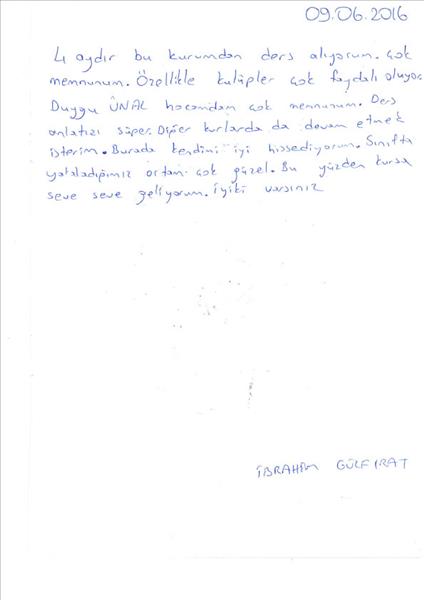 09.06.2016
4 aydır bu kurumdan ders alıyorum. Çok
memnunum. Özellikle kulüpler çok faydalı oluyor.
Duygu ÜNAL hocamdan çok memnunum. Ders
anlatışı süper. Diğer kurlarda da devam etmek
isterim. Burada kendimi iyi hissediyorum. Sınıfta
yakaladığımız ortam çok güzel. Bu yüzden kursa
seve seve geliyorum. İyiki varsınız
İBRAHİM GÜLFIRAT